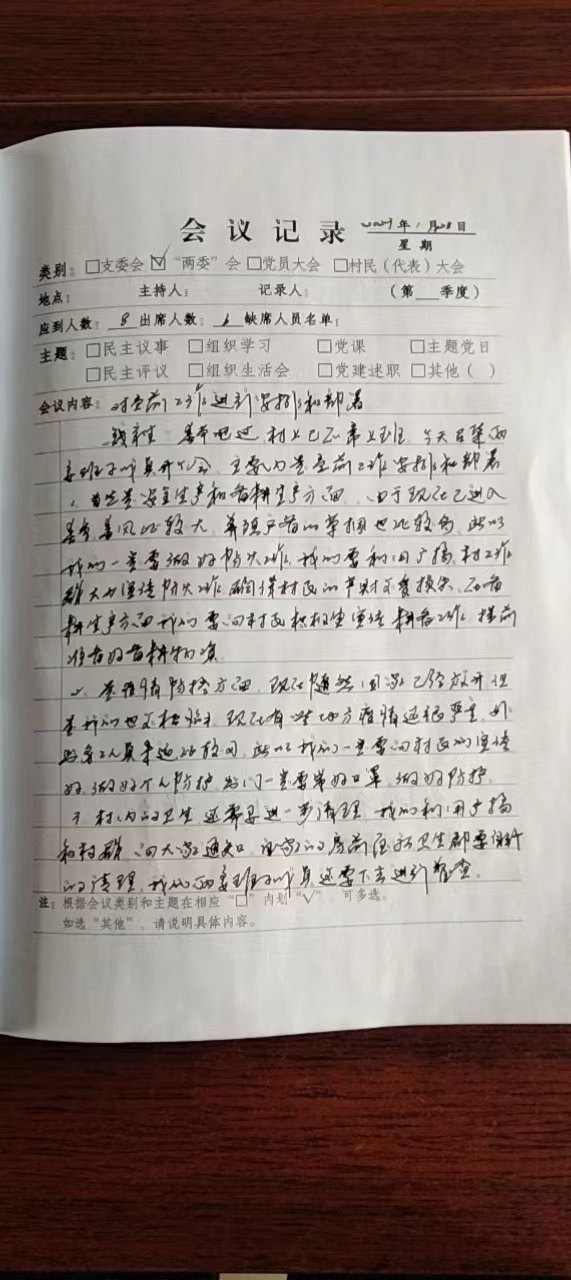 会议记录 年1月28日
星期
类别：□支委会 ☑“两委”会 □党员大会 □村民（代表）大会
地点： 主持人： 记录人： （第 季度）
应到人数：8 出席人数：6 缺席人员名单：
主题：□民主议事 □组织学习 □党课 □主题党日
□民主评议 □组织生活会 □党建述职 □其他（ ）
会议内容：对当前工作进行安排和部署
春节已过，村上已正常上班，今天召集两
委班子成员开个会，主要内容是当前工作安排和部署
1、首先是安全生产和春耕生产方面，由于现在已进入
春季，春风比较大，养殖户的草相也比较多，所以
我们一定要做好防火工作，我们要利用广播，村工作
群大力宣传防火工作，确保村民的财产不受损失，而春
耕生产方面我们要向村民积极宣传春耕工作，提前
准备好春耕物资
2、是疫情防控方面，现在随然国家已经放开但
是我们也不松懈，现在有些地方疫情还很严重，外
出务工人员来返比较多，所以我们一定要向村民们宣传
好，做好个人防护，出门一定要带好口罩，做好防护，
3、村内的卫生还需要进一步清理，我们利用广播
和村群，向大家通知，自家的房前屋后卫生都要彻底
的清理，我们两委班子成员还要下去进行检查。
注：根据会议类别和主题在相应“□”内划“√”，可多选。
如选“其他”，请说明具体内容。